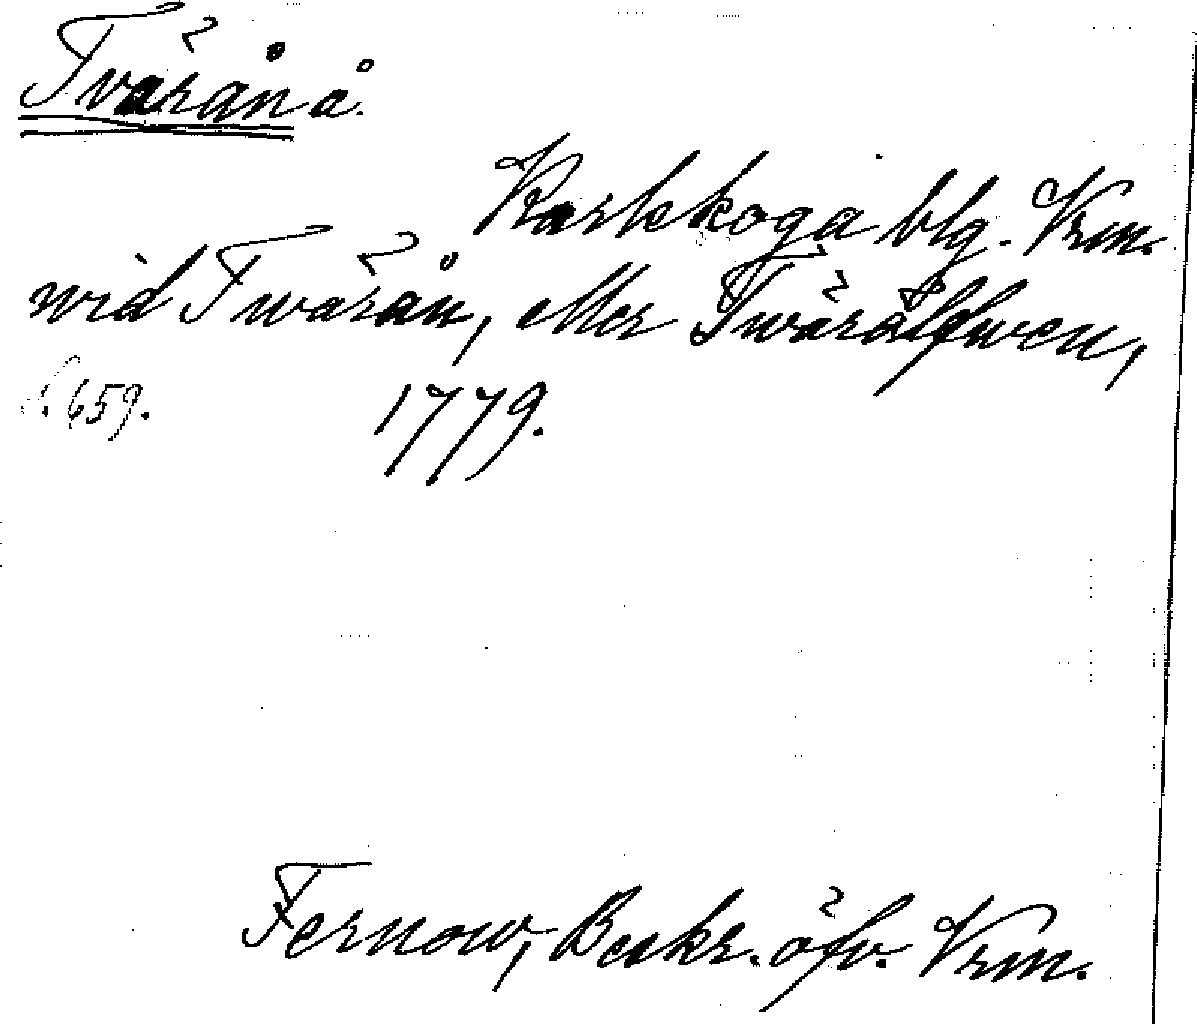 Tvärån å.
Karlskoga blg. Vrm.
wid Twärån, eller Twärälfwen,
s. 659. 1779.
Fernow, Beskr. öfv. Vrm.